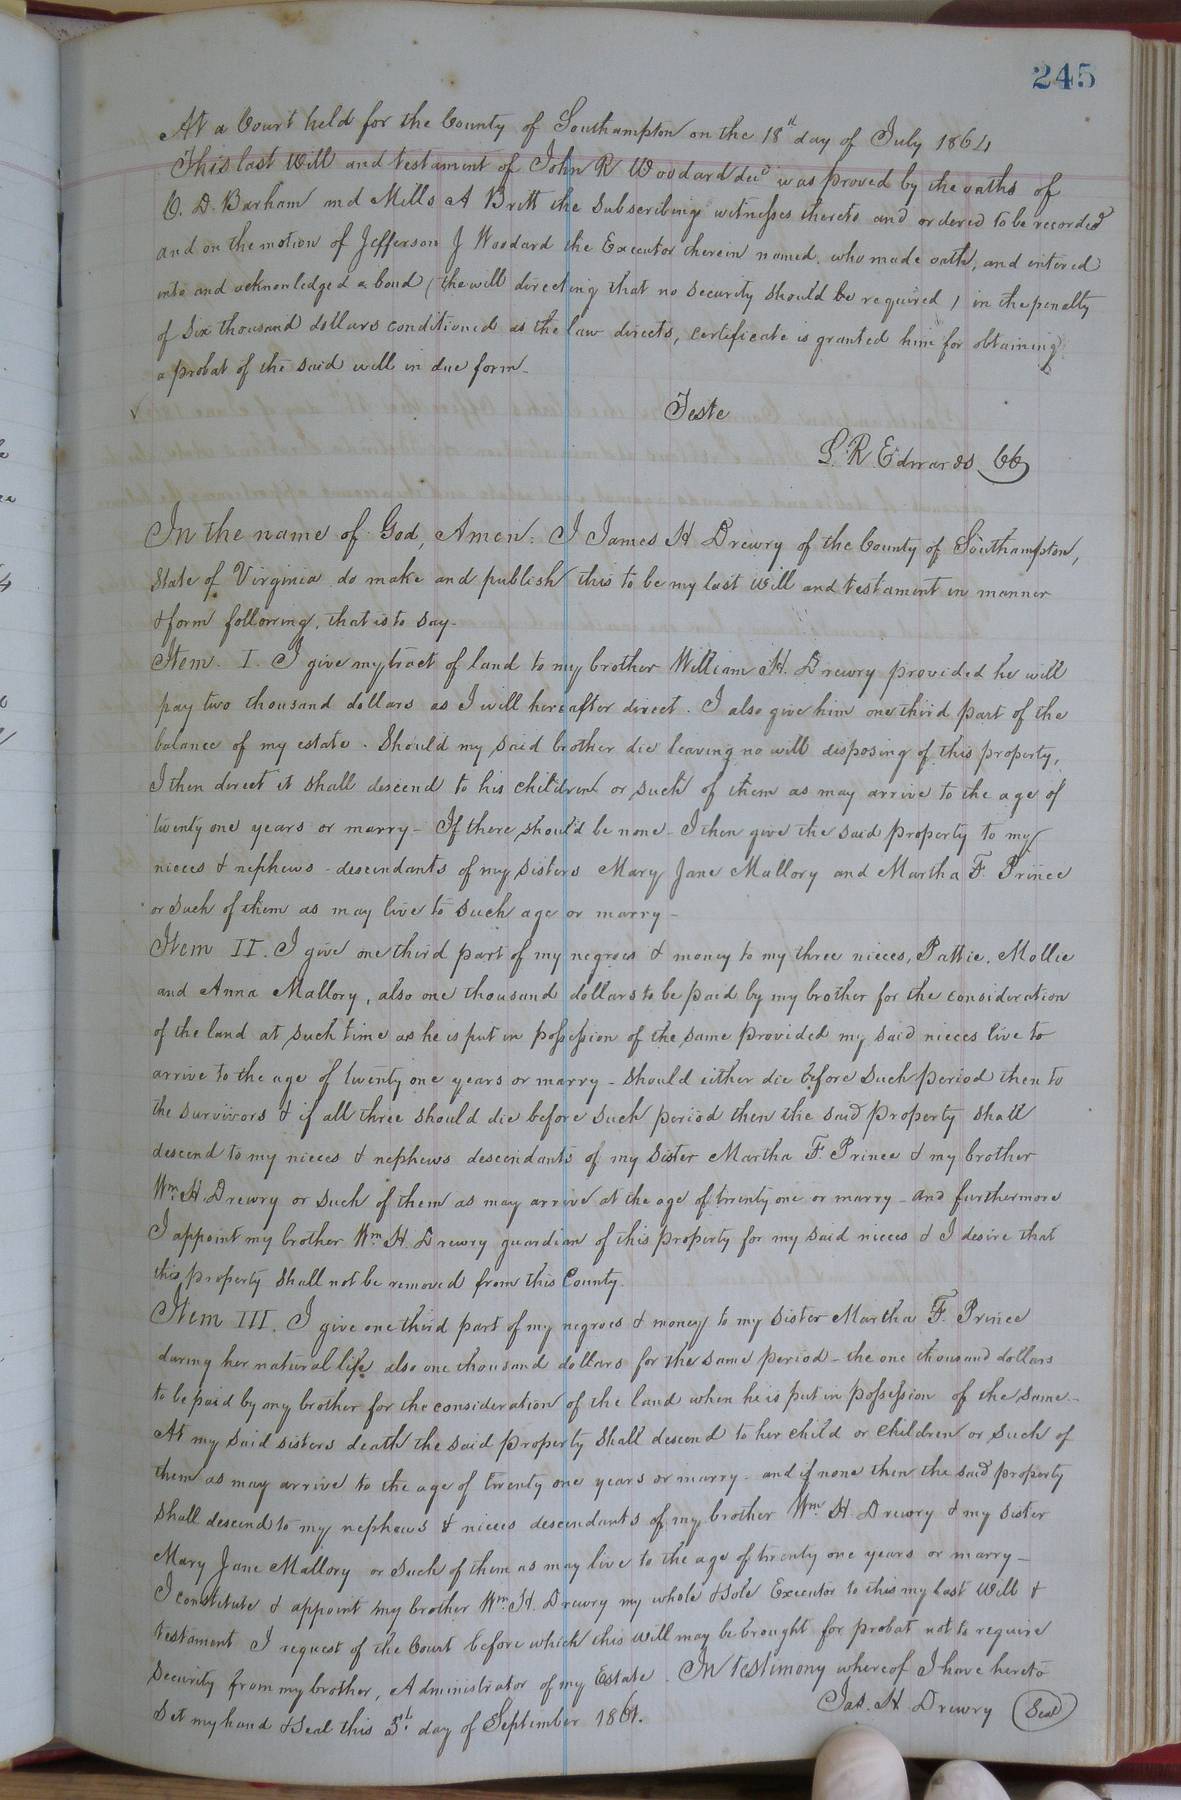 245
At a Court held for the County of Southampton on the 18th day of July 1864
This last Will and testament of John R Woodard decd was proved by the oaths of
O. D. Barham and Mills A Britt the Subscribing witnesses thereto and ordered to be recorded
and on the motion of Jefferson J Woodard the Executor therein named, who made oath, and entered
into and acknowledged a bond (the will directing that no security should be required) in the penalty
of Six thousand dollars conditioned as the law directs, certificate is granted him for obtaining
a probat of the said will in due form-
Teste
L R Edwards CC
In the name of God, Amen. I James H Drewry of the County of Southampton,
State of Virginia do make and publish this to be my last Will and testament in manner
& form following, that is to say-
Item. I. I give my tract of land to my brother William H. Drewry provided he will
pay two thousand dollars as I will hereafter direct. I also give him one third part of the
balance of my estate. Should my said brother die leaving no will disposing of this property,
I then direct it shall descend to his children or such of them as may arrive to the age of
twenty one years or marry- If there should be none- I then give the said property to my
nieces & nephews - descendants of my sisters Mary Jane Mallory and Martha F. Prince
or such of them as may live to such age or marry-
Item II. I give one third part of my negroes & money to my three nieces, Pattie, Mollie
and Anna Mallory, also one thousand dollars to be paid by my brother for the consideration
of the land at such time as he is put in possession of the same provided my said nieces live to
arrive to the age of twenty one years or marry- Should either die before such period then to
the survivors & if all three should die before such period then the said property shall
descend to my nieces & nephews descendants of my Sister Martha F Prince & my brother
Wm. H. Drewry or such of them as may arrive at the age of twenty one or marry- and furthermore
I appoint my brother Wm H. Drewry guardian of this property for my said nieces & I desire that
this property shall not be removed from this County.
Item III. I give one third part of my negroes & money to my sister Martha F. Prince
during her natural life, also one thousand dollars for the same period- the one thousand dollars
to be paid by my brother for the consideration of the land when he is put in possession of the same-
At my said sisters death the said property shall descend to her child or children or such of
them as may arrive to the age of twenty one years or marry- and if none then the said property
shall descend to my nephews & nieces descendants of my brother Wm H. Drewry & my sister
Mary Jane Mallory or such of them as may live to the age of twenty one years or marry-
I constitute & appoint my brother Wm. H. Drewry my whole & sole Executor to this my last Will &
testament I request of the Court before which this will may be brought for probat not to require
security from my brother, Administrator of my Estate. In testimony whereof I have hereto
set my hand & seal this 5th day of September 1861.
Jas. H Drewry Seal